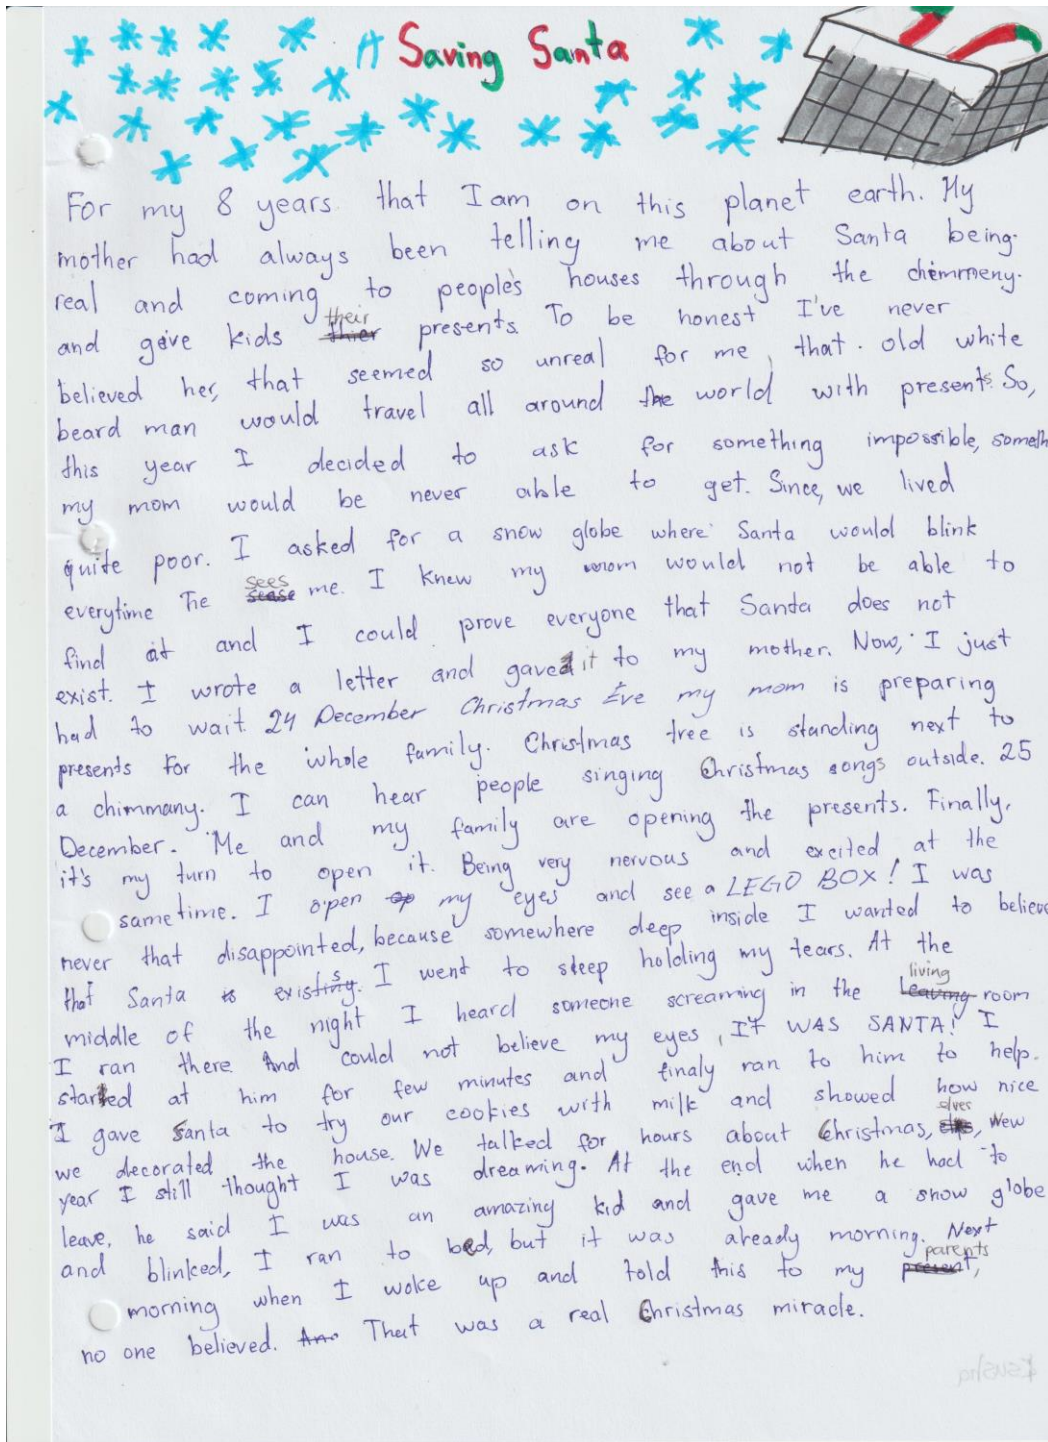 Saving Santa
For my 8 years that I am on this planet earth. My
mother had always been telling me about Santa being
real and coming to people's houses through the chimmeny.
and give kids their presents. To be honest I've never
believed her, that seemed so unreal for me, that old white
beard man would travel all around the world with presents. So,
this year I decided to ask for something impossible, someth
my mom would be never able to get. Since, we lived
quite poor. I asked for a snow globe where Santa would blink
everytime he sees me. I knew my mom would not be able to
find it and I could prove everyone that Santa does not
exist. I wrote a letter and gave it to my mother. Now, I just
had to wait. 24 December Christmas Eve my mom is preparing
presents for the whole family. Christmas tree is standing next to
a chimmany. I can hear people singing Christmas songs outside. 25
December. Me and my family are opening the presents. Finally,
it's my turn to open it. Being very nervous and excited at the
same time. I open my eyes and see a LEGO BOX! I was
never that disappointed, because somewhere deep inside I wanted to believe
that Santa exists. I went to sleep holding my tears. At the
middle of the night I heard someone screaming in the living room
I ran there And could not believe my eyes, IT WAS SANTA! I
started at him for few minutes and finaly ran to him to help.
I gave Santa to try our cookies with milk and showed how nice
we decorated the house. We talked for hours about Christmas, elves, New
year I still thought I was dreaming. At the end when he had to
leave, he said I was an amazing kid and gave me a snow globe
and blinked, I ran to bed, but it was already morning. Next
morning when I woke up and told this to my parents,
no one believed. That was a real Christmas miracle.